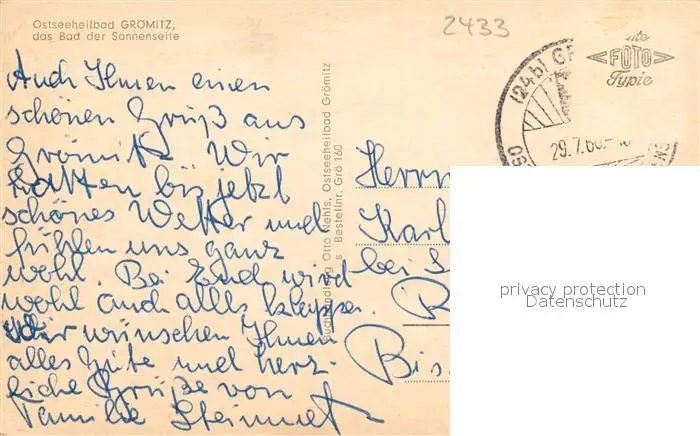 Ostseeheilbad GRÖMITZ,
das Bad der Sonnenseite
2433
Auch Ihnen einen
schönen Gruß aus
Grömitz. Wir
hatten bis jetzt
schönes Wetter und
fühlen uns ganz
wohl. Bei Euch wird
wohl auch alles klappen.
Wir wünschen Ihnen
alles Gute und herz-
liche Grüße von
Familie Steinmetz
Buchhandlung Otto Nehls, Ostseeheilbad Grömitz
Bestellnr. Grö 160
FOTO
Typie
(24b) GR
29.7.60.-
Herrn
Karl
bei S
R
Bis
privacy protection
Datenschutz